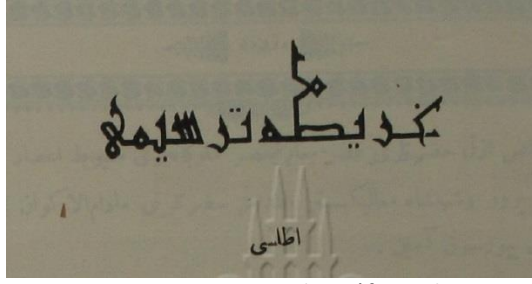 خريطه ترسيمى
اطلسى